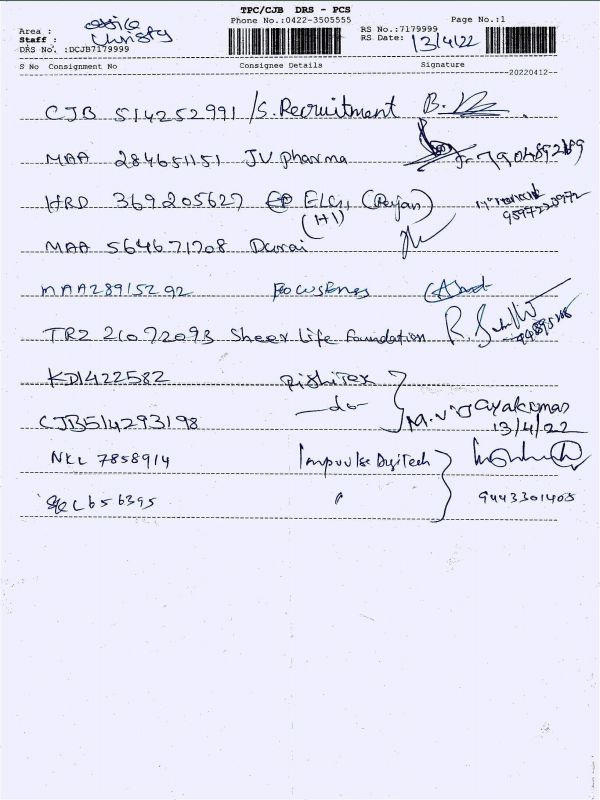 TPC/CJB DRS - PCS
Phone No.:0422-3505555 Page No.:1
Area : office
Staff : Christy
DRS No. :DCJB7179999
RS No.:7179999
RS Date: 13/4/22
S No Consignment No Consignee Details Signature
20220412
CJB 514252991 /S. Recruitment B.
MAA 284651151 JV pharma
HRD 369205627 ELGi (Rajan)
(H1)
MAA 564671708 Durai
MAA28915292 Focus Engg
TRZ 21072093 Sheer Life Foundation
KDI422582 Rishitex
CJB514293198 —do— M. Vijayakumar
13/4/22
NKL 7858914 Impulse Digitech
656395 " 9443301403